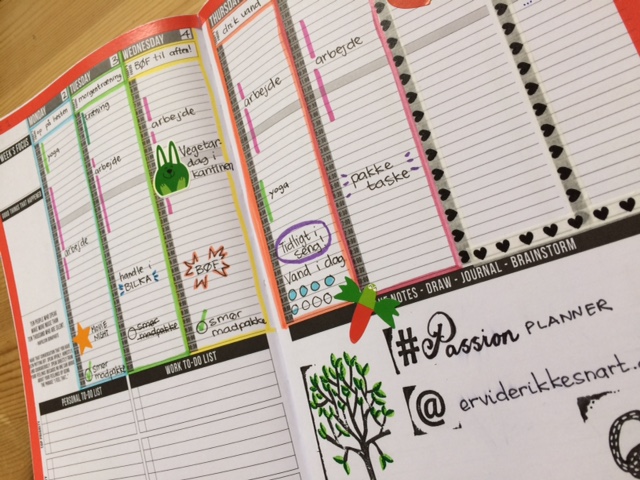 WEEK'S FOCUS
GOOD THINGS THAT HAPPENED
MONDAY
yoga
arbejde
smør
madpakke
TUESDAY
morgentræning
træning
arbejde
handle i
BILKA
smør
madpakke
WEDNESDAY 4
BØF til aften!
arbejde
Vegetar-
dag i
kantinen
BØF
smør
madpakke
THURSDAY
drik vand
arbejde
yoga
Tidligt i
seng!
Vand i dag
arbejde
pakke
taske
PERSONAL TO-DO LIST
WORK TO-DO LIST
NOTES - DRAW - JOURNAL - BRAINSTORM
#Passion PLANNER
@ erviderikkesnart.